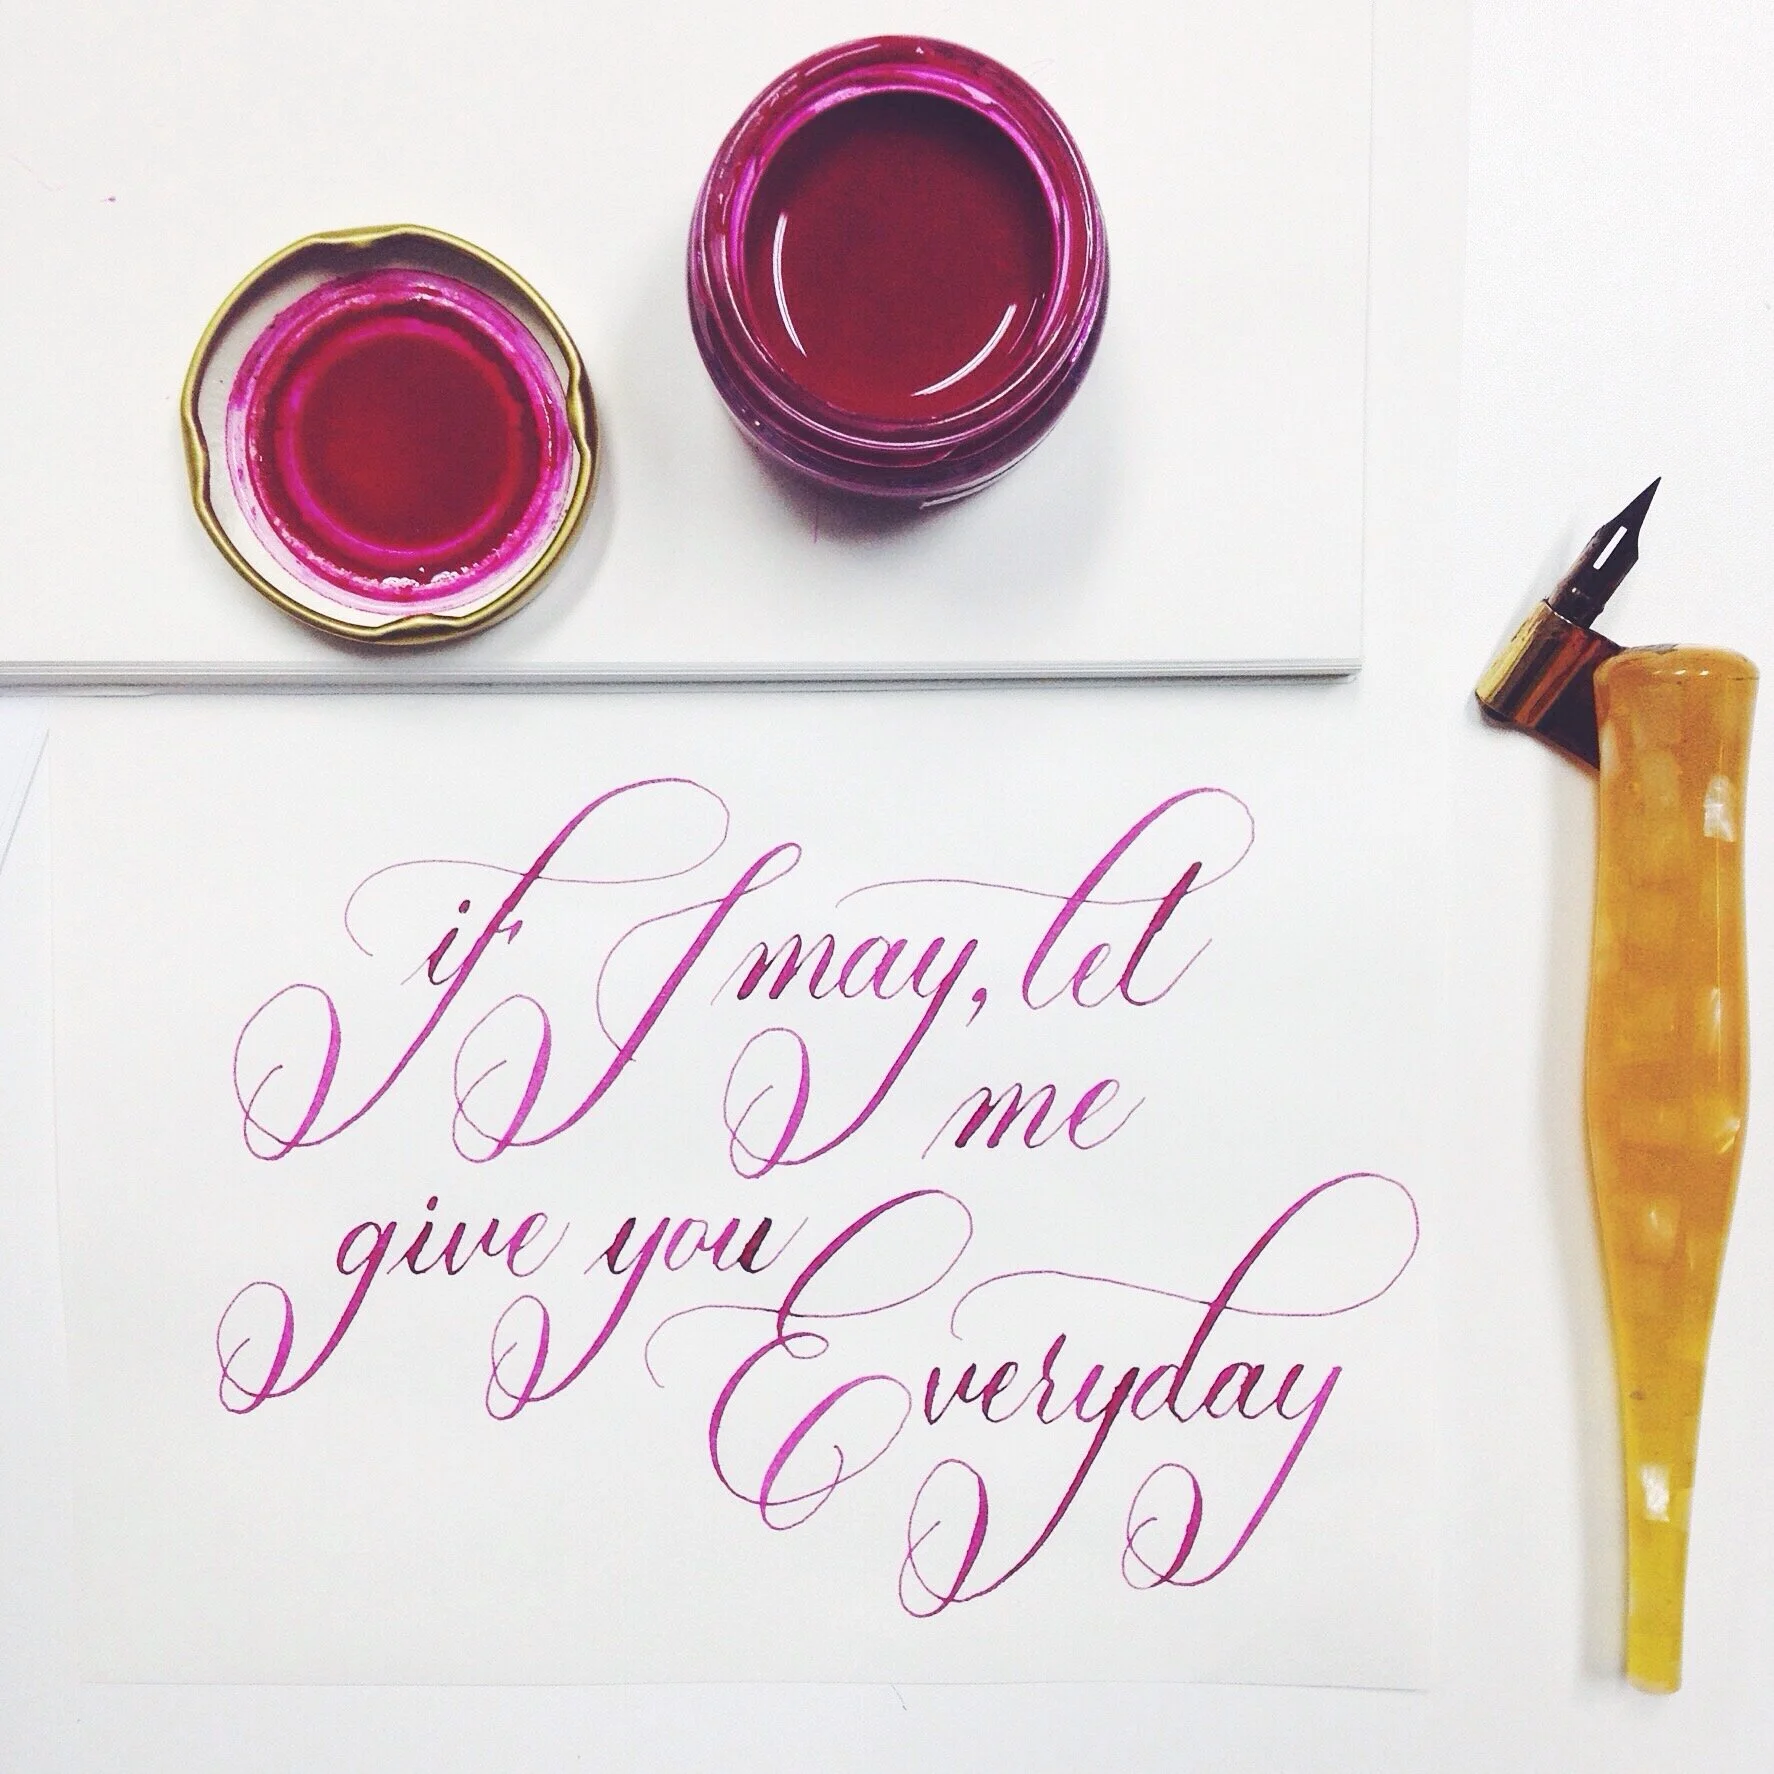 if I may, let
me
give you
Everyday